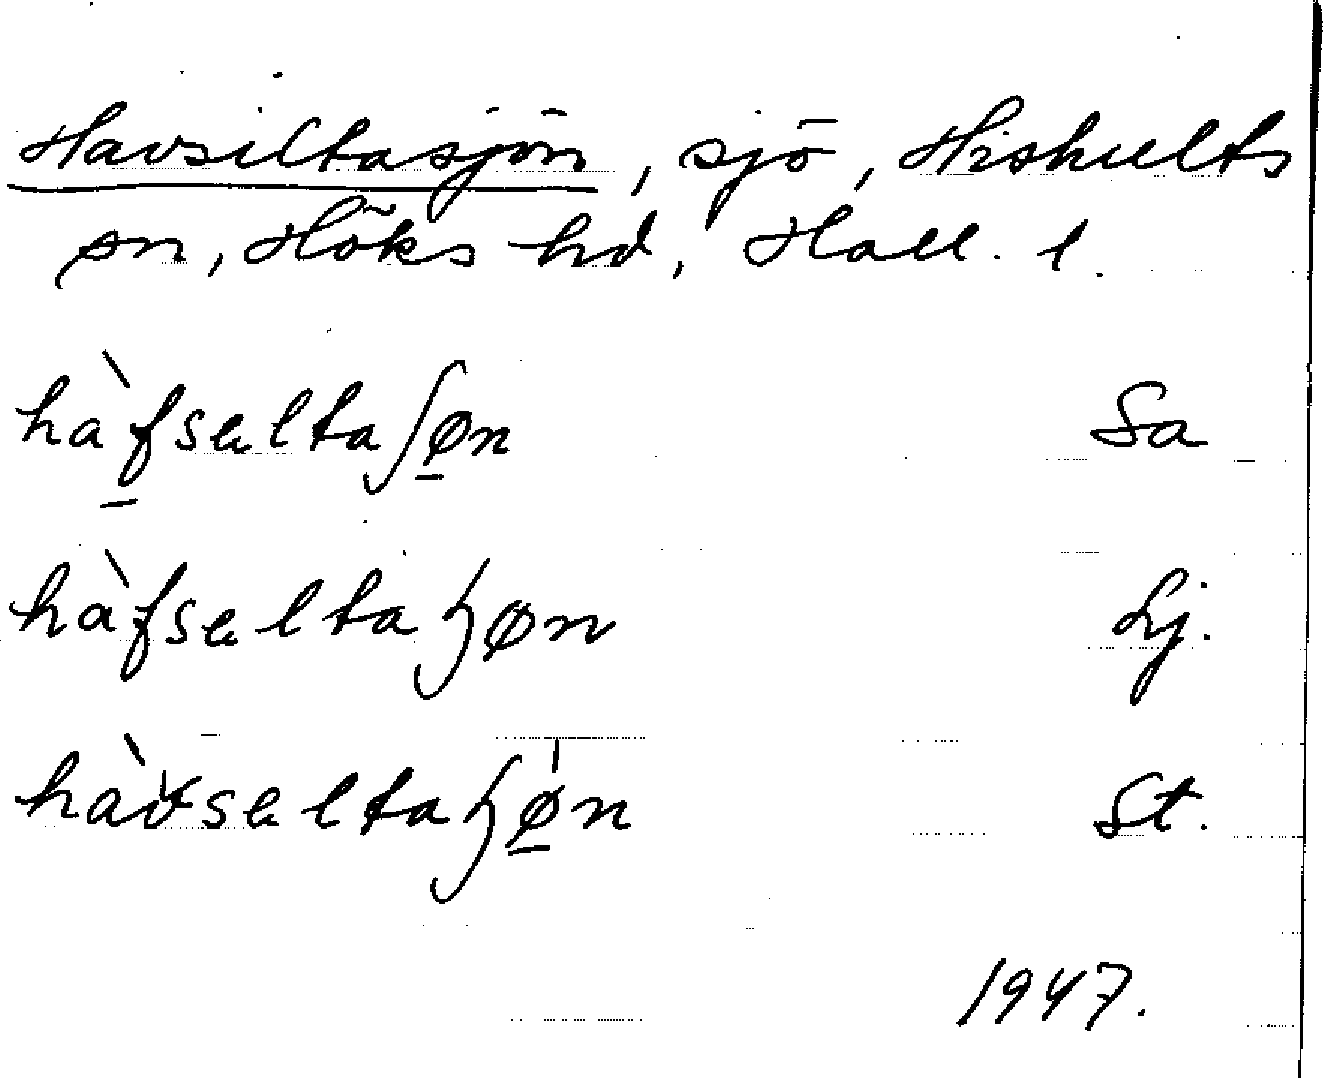 Havsiltasjön, sjö, Hishults
sn, Höks hd, Hall. l.
hàfseltaʃøn Sa
hàfseltaɧøn Lj.
hàvseltaɧøn St.
1947.